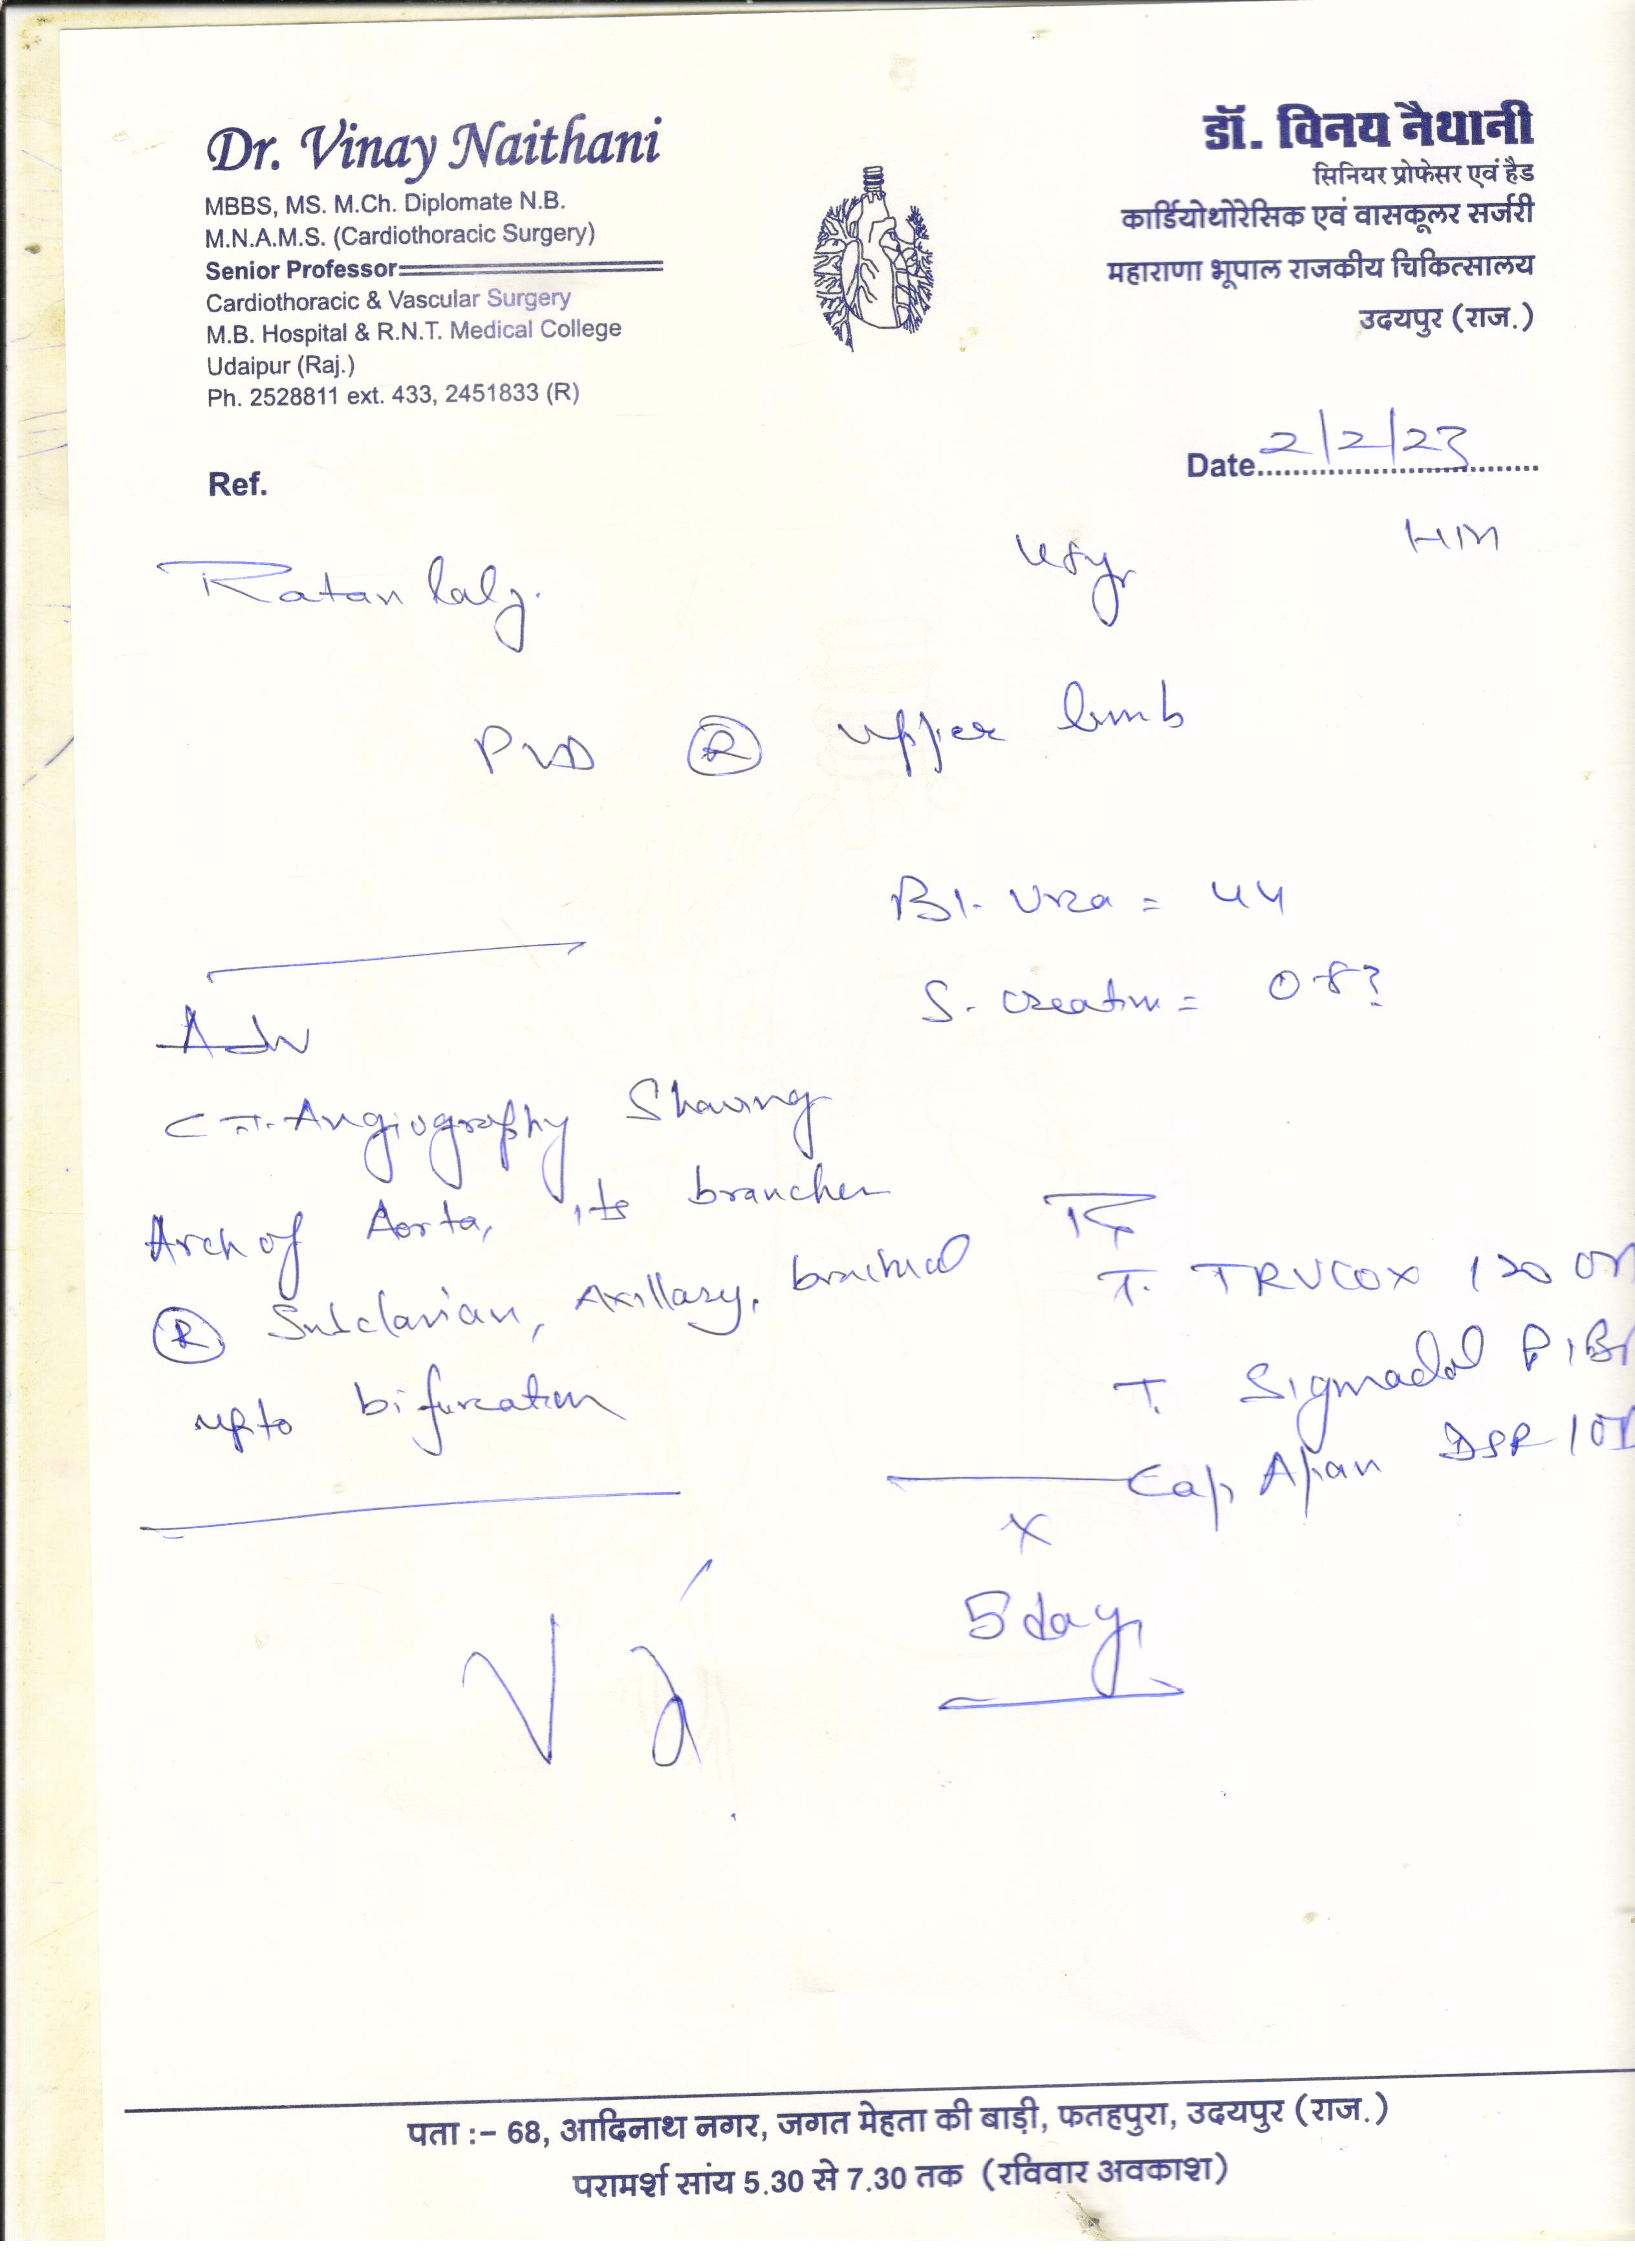 Dr. Vinay Naithani
MBBS, MS. M.Ch. Diplomate N.B.
M.N.A.M.S. (Cardiothoracic Surgery)
Senior Professor
Cardiothoracic & Vascular Surgery
M.B. Hospital & R.N.T. Medical College
Udaipur (Raj.)
Ph. 2528811 ext. 433, 2451833 (R)
डॉ. विनय नैथानी
सिनियर प्रोफेसर एवं हैड
कार्डियोथोरेसिक एवं वासकूलर सर्जरी
महाराणा भूपाल राजकीय चिकित्सालय
उदयपुर (राज.)
Date 2/2/23
Ref.
Ratan lalj.
PVD R upper limb
Bl. Urea = 44
S. Creatin =
Adv
C.T. Angiography Showing
Arch of Aorta, its branches
R Subclavian, Axillary, brachial
upto bifurcation
T. TRUCOX 120
T. Sigmadol P
Cap Apan DSR
x
5 day
पता :- 68, आदिनाथ नगर, जगत मेहता की बाड़ी, फतहपुरा, उदयपुर (राज.)
परामर्श सांय 5.30 से 7.30 तक (रविवार अवकाश)